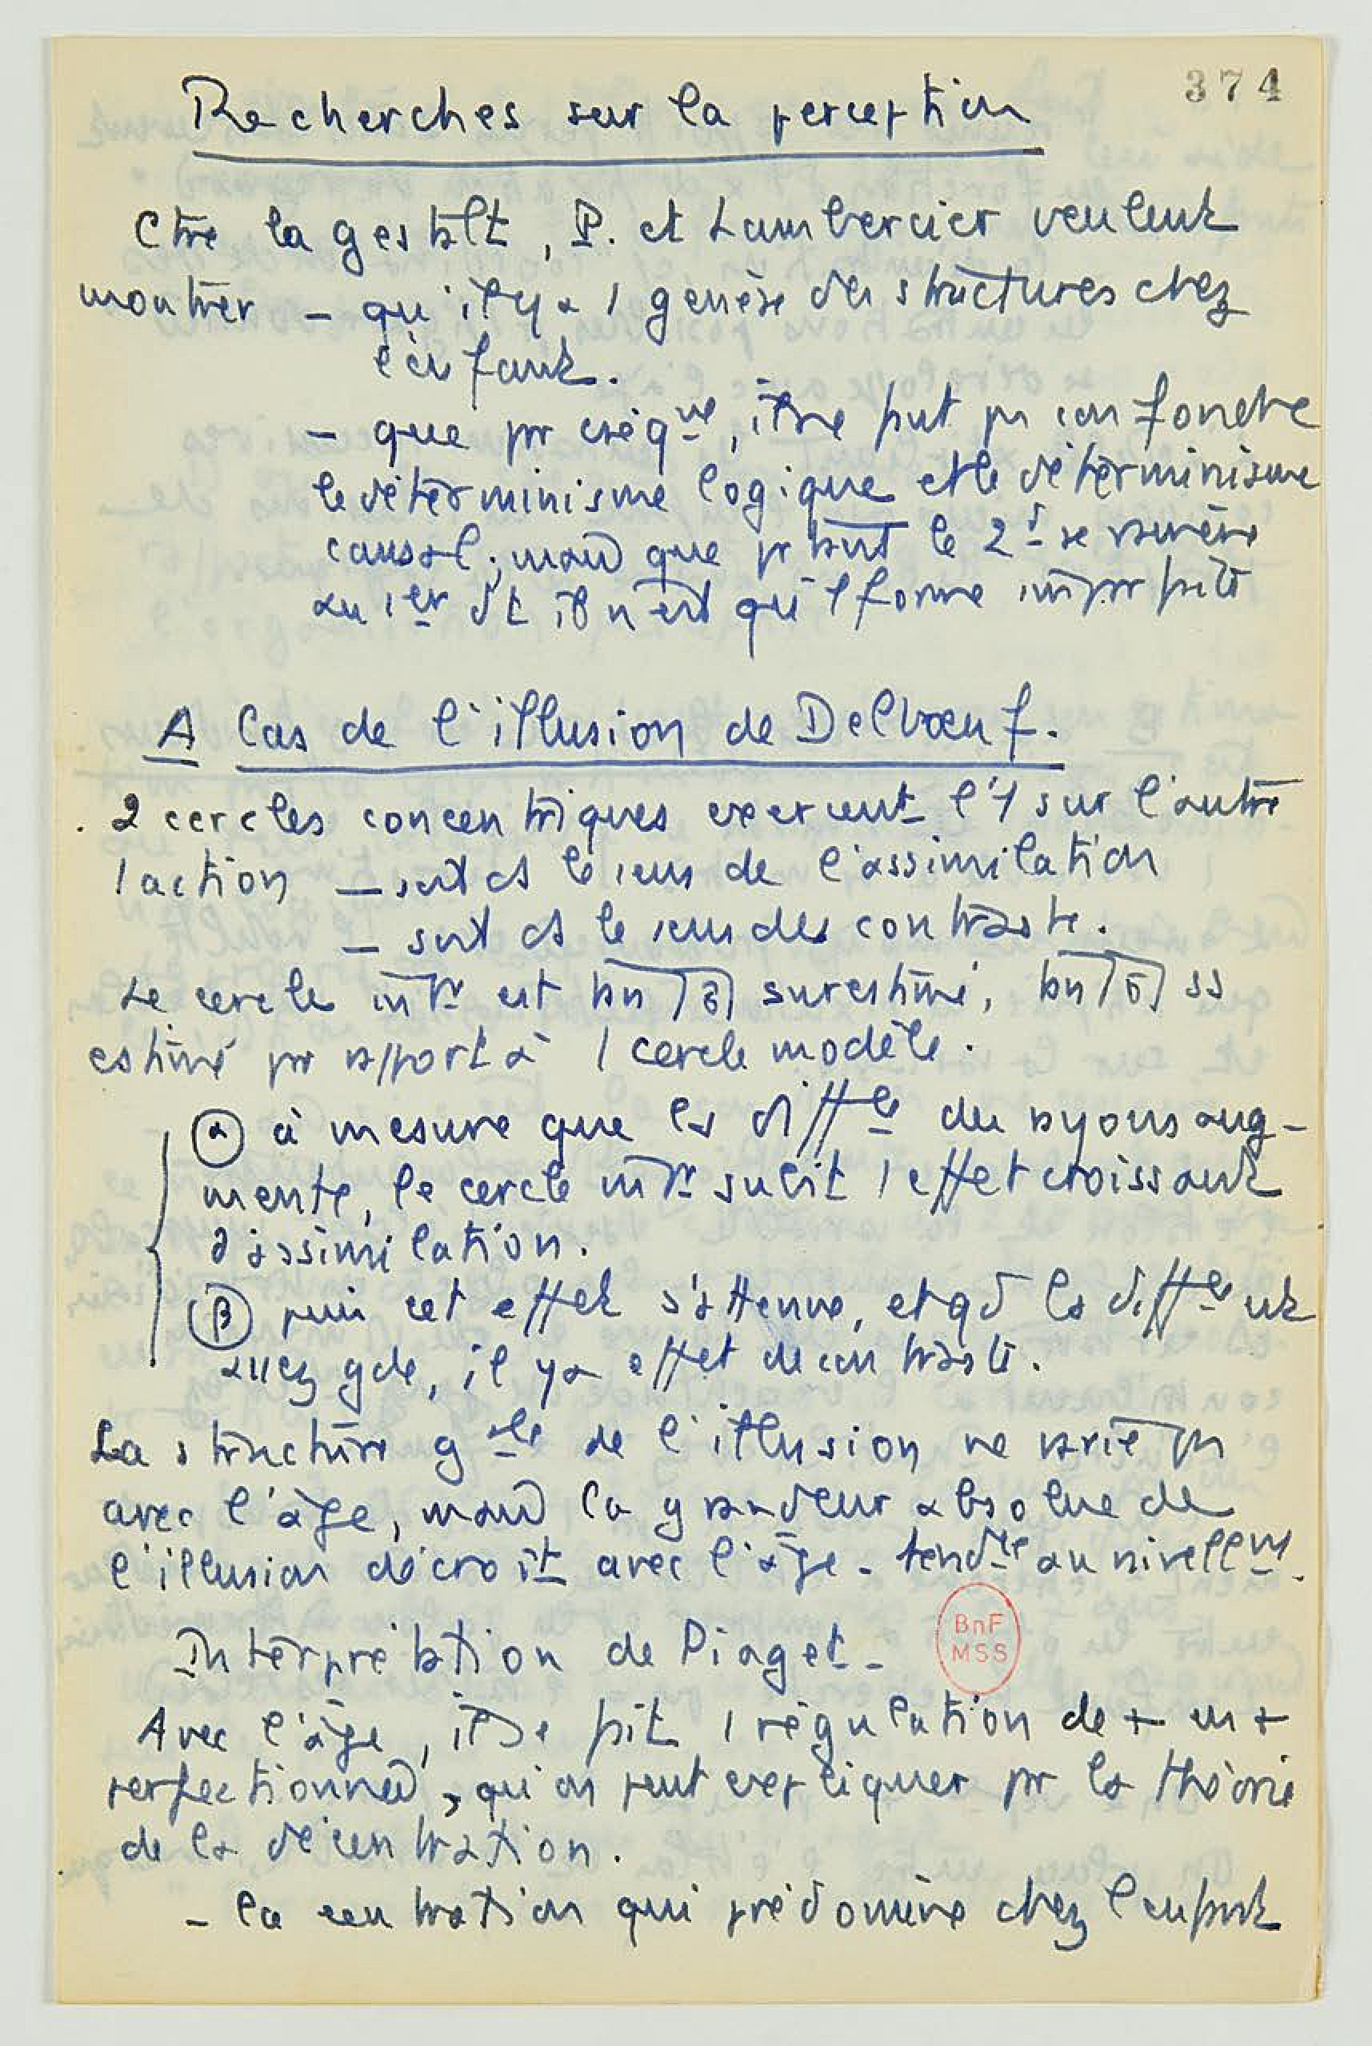 374
Recherches sur la perception
Ctre la gestalt, P. et Lambercier veulent
montrer - qu'il y a 1 genèse des structures chez
l'enfant.
- que pr cséqnt, il ne put pas confondre
le déterminisme logique et le déterminisme
causal; mais que prtant le 2d se ramène
au 1er dt il n'est qu'1 forme imprfaite
A Cas de l'illusion de Delbœuf.
2 cercles concentriques exercent l'1 sur l'autre
1 action - soit ds le sens de l'assimilation
- soit ds le sens des contraste.
Le cercle intr est tantôt surestimé, tantôt ss
estimé pr rapport à 1 cercle modèle.
α à mesure que les difces des rayons aug-
mente, le cercle intr subit 1 effet croissant
d'assimilation.
β puis cet effet s'atténue, et qd la diffce est
assez gde, il y a effet de contraste.
La structure gale de l'illusion ne varie pas
avec l'âge, mais la grandeur absolue de
l'illusion décroît avec l'âge - tendce au nivellt.
Interprétation de Piaget -
Avec l'âge, il se fait 1 régulation de + en +
perfectionnée, qu'on peut expliquer pr la théorie
de la décentration.
- la centration qui prédomine chez l'enfant
BnF
MSS